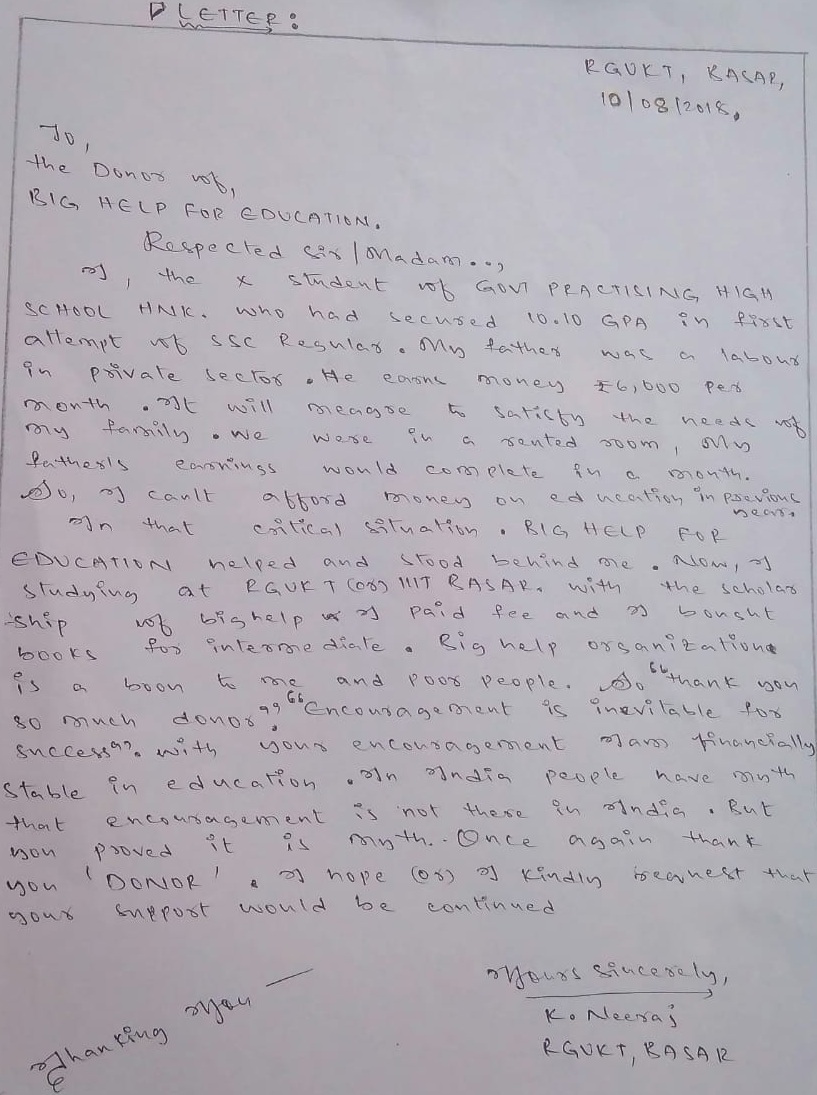 LETTER:
RGUKT, BASAR,
10/08/2018.
To,
the Donor of,
BIG HELP FOR EDUCATION.
Respected Sir/Madam..,
I, the X student of GOVT PRACTISING HIGH
SCHOOL HNK. who had secured 10.10 GPA in first
attempt of SSC Regular. My father was a labour
in private sector. He earns money ₹6,000 per
month. It will meagre to satisfy the needs of
my family. we were in a rented room, My
father's earnings would complete in a month.
So, I can't afford money on education in previous
year.
In that critical situation. BIG HELP FOR
EDUCATION helped and stood behind me. Now, I
studying at RGUKT (or) IIIT BASAR. with the scholar
-ship of big help I paid fee and I bought
books for intermediate. Big help organization
is a boon to me and poor people. So "thank you
so much donor". "Encouragement is inevitable for
success". with your encouragement I am financially
stable in education. In India people have myth
that encouragement is not there in India. But
you proved it is myth.. Once again thank
you 'DONOR'. I hope (or) I kindly request that
your support would be continued
Thanking you —
Yours sincerely,
K. Neeraj
RGUKT, BASAR